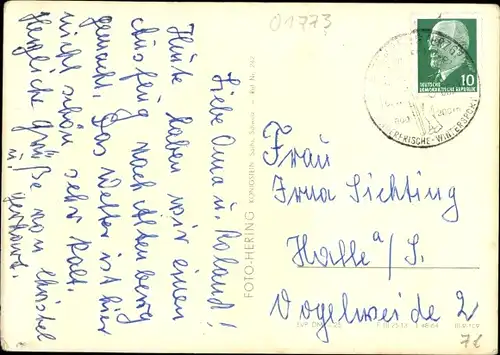 01773
Liebe Oma u. Roland!
Heute haben wir einen
Ausflug nach Altenberg
gemacht. Das Wetter ist hier
nicht schön sehr kalt.
Herzliche Grüße von Christel
u.
FOTO-HERING KÖNIGSTEIN
10
DEUTSCHE
DEMOKRATISCHE REPUBLIK
ERFRISCHE-WINTERSPORT
Frau
Irna Sichting
Halle a/S.
Vogelweide 2